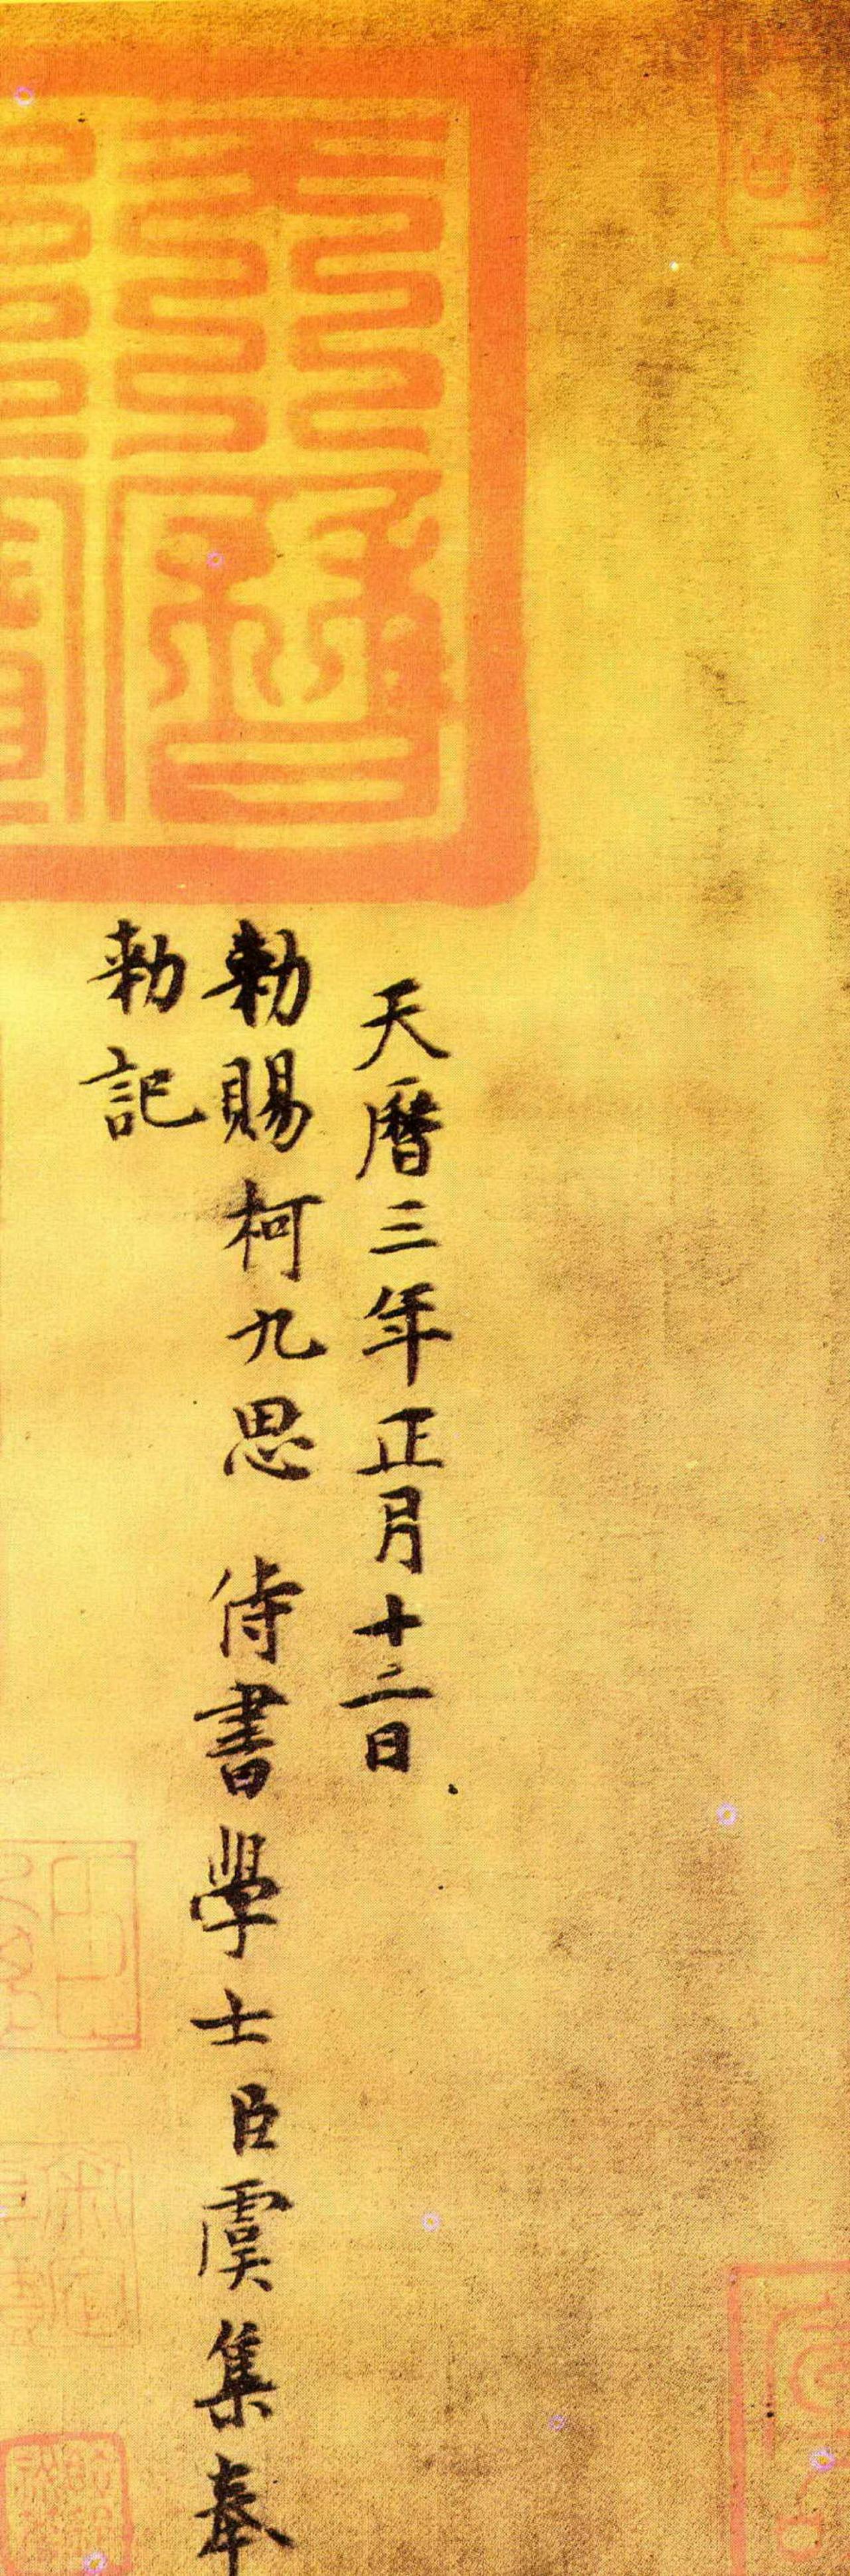 天曆三年正月十二日
勑賜柯九思 侍書學士臣虞集奉
勑記
天曆